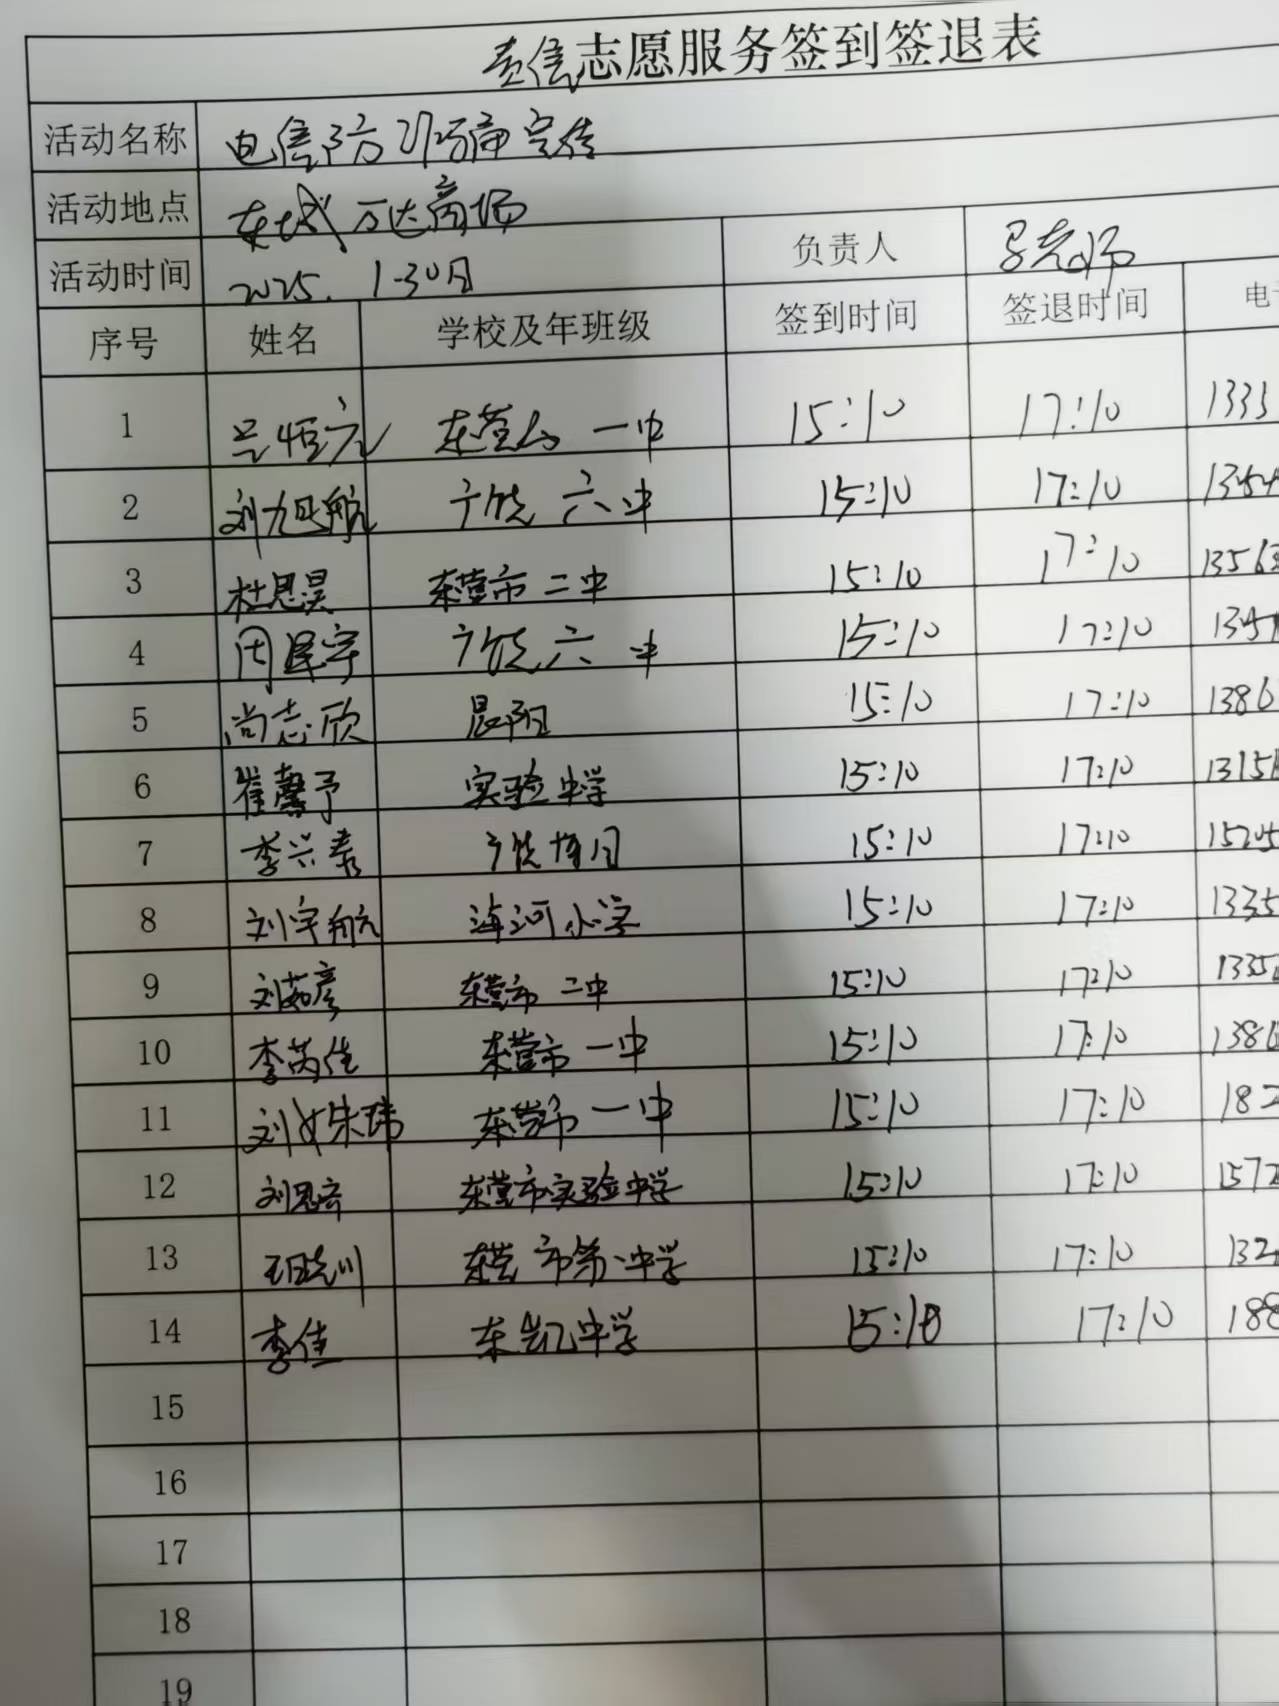 志愿服务签到签退表
活动名称 电信防诈骗宣传
活动地点 东城万达商场
活动时间 2025.1.30日 负责人 吕老师
序号 姓名 学校及年班级 签到时间 签退时间 电
1 吕恒亢 东营市一中 15:10 17:10 1333
2 刘旭航 广饶六中 15:10 17:10
3 杜思昊 东营市二中 15:10 17:10 13563
4 周民宇 广饶六中 15:10 17:10
5 尚志欣 晨阳 15:10 17:10 1386
6 崔馨予 实验中学 15:10 17:10 1315
7 李兴泰 广饶 15:10 17:10
8 刘宇航 海河小学 15:10 17:10 1335
9 刘茹彦 东营市二中 15:10 17:10 1335
10 李芮佳 东营市一中 15:10 17:10 1386
11 刘 15:10 17:10 182
东营市一中
12 刘思齐 东营市实验中学 15:10 17:10 1572
13 东营市第一中学 15:10 17:10 132
14 李佳 东凯中学 15:10 17:10 188
15
16
17
18
19